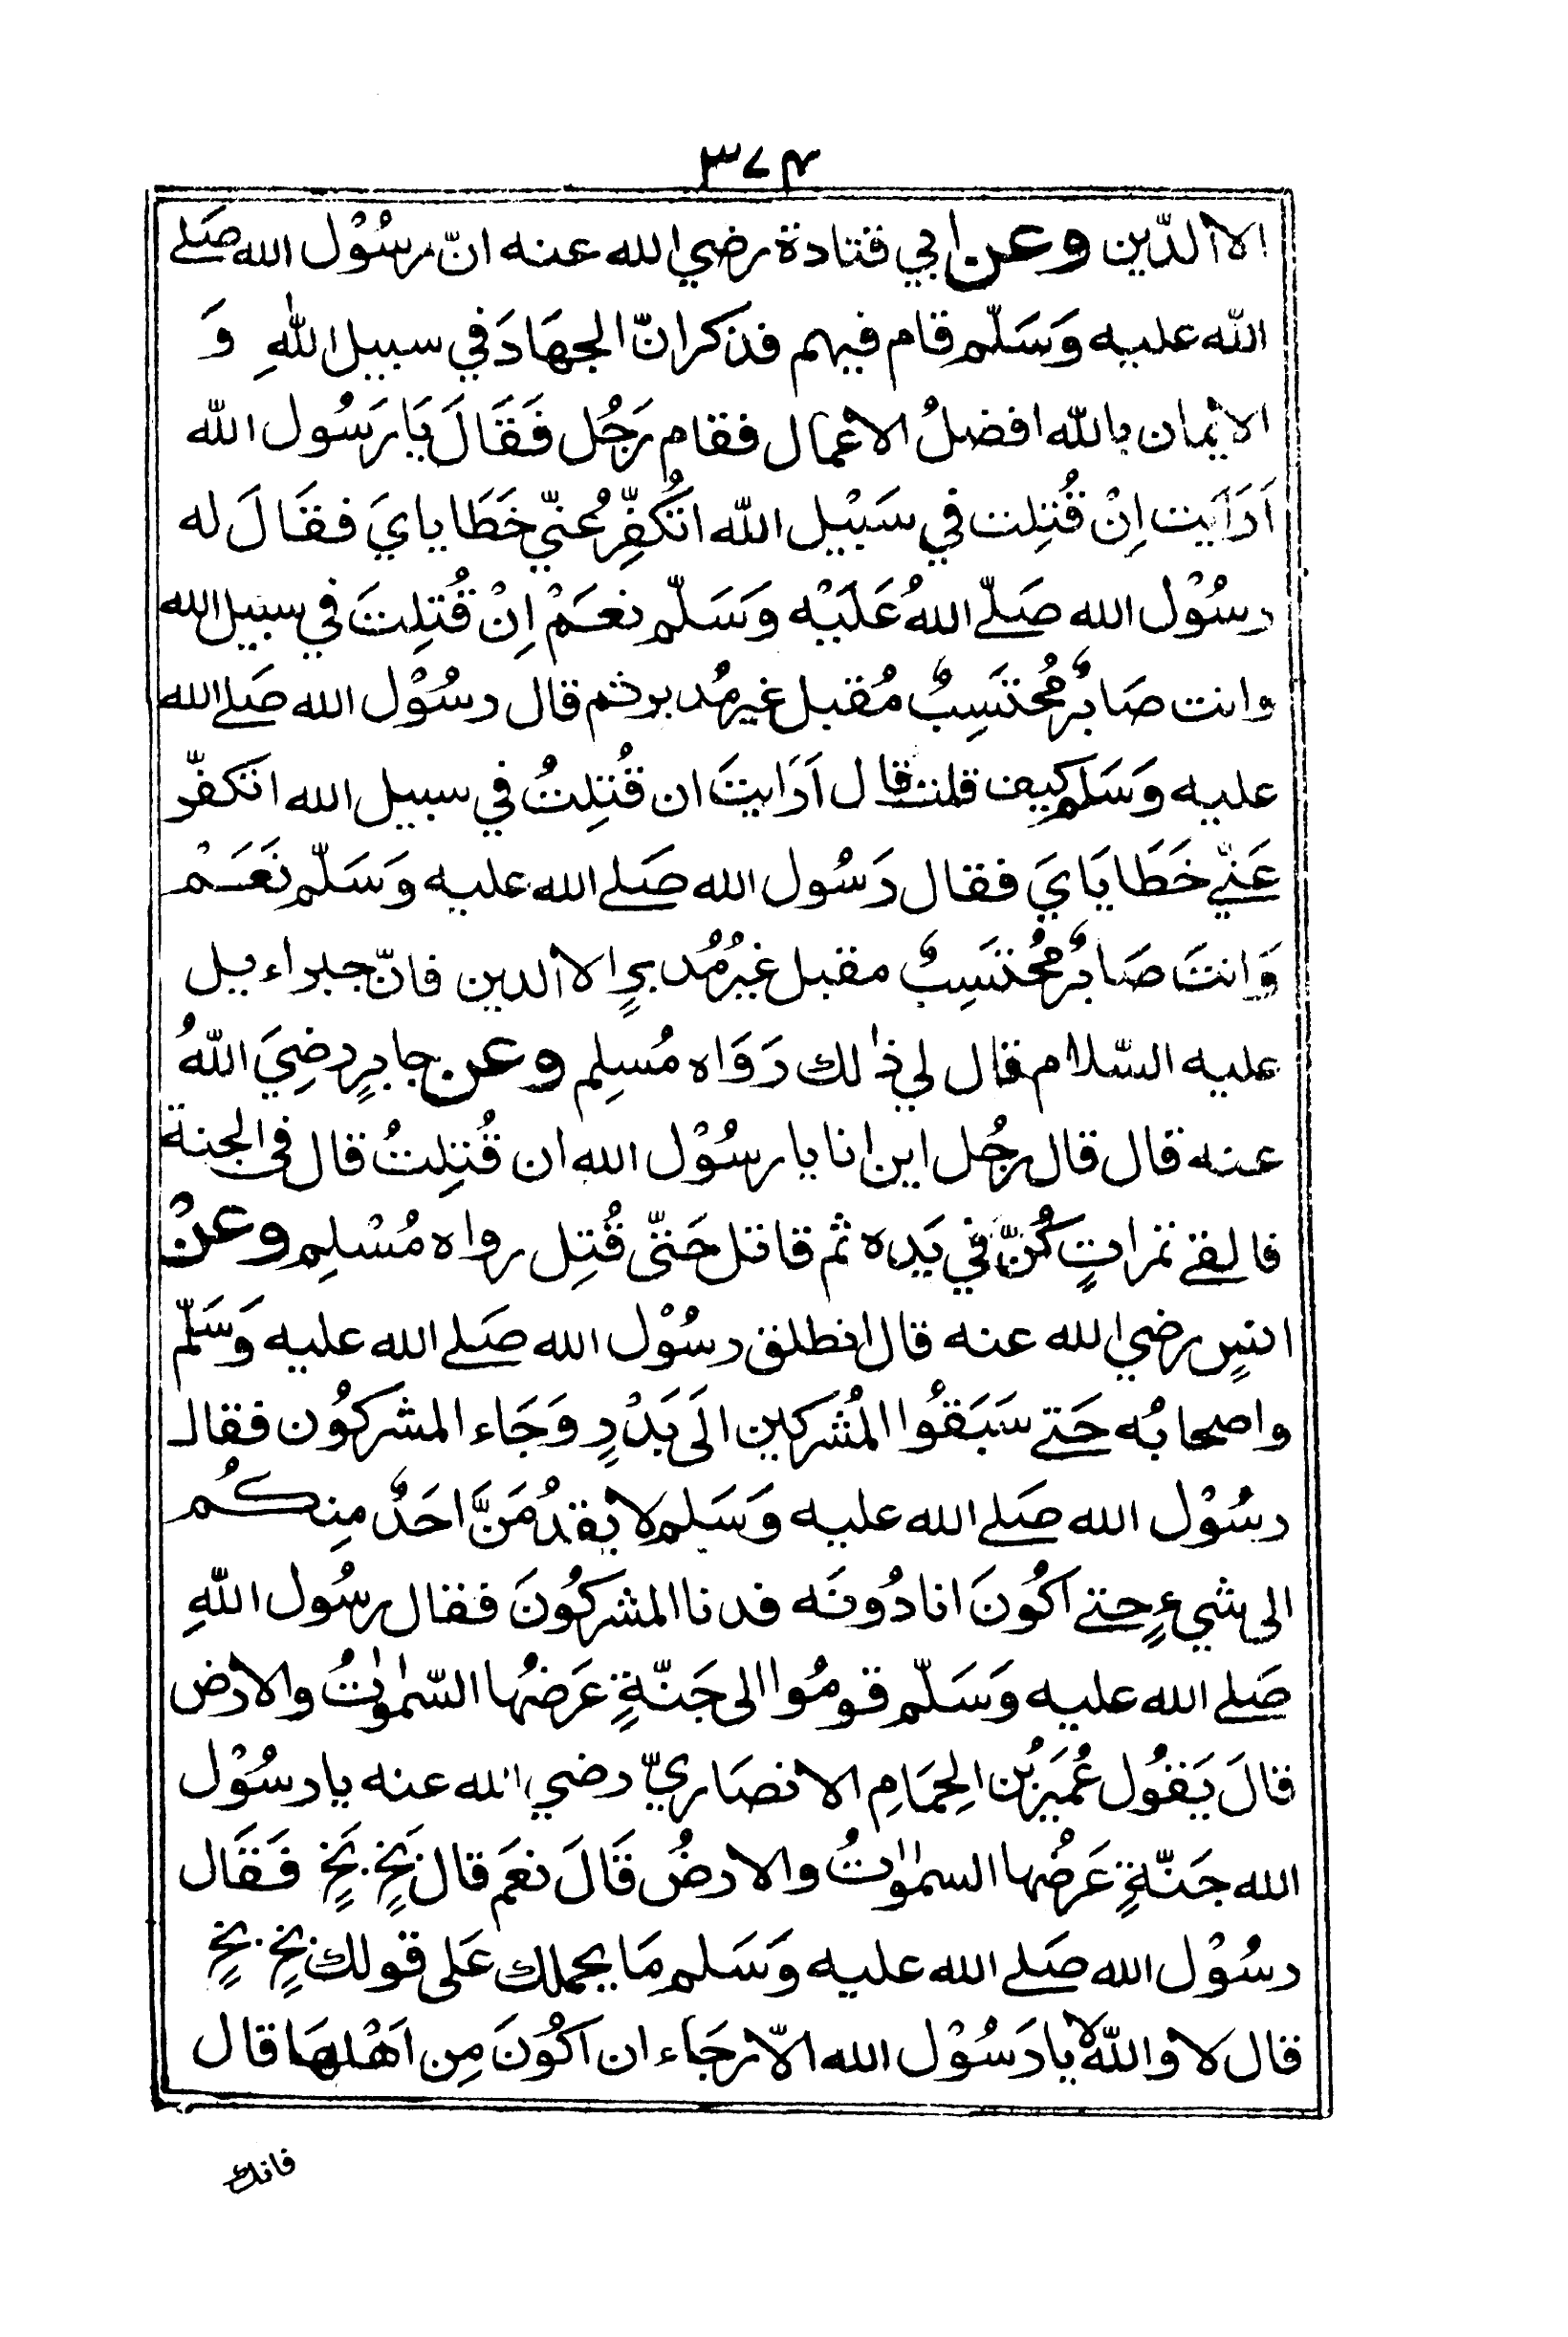 ٣٧٤
الا الدّين وعن ابي قتادة رضي الله عنه انّ رسُوْل الله صَلے
اللّه عليه وَسَلّم قام فيهم فذكر انّ الجهَادَ في سبيل اللّٰهِ وَ
الايْمان باللّه افضلُ الاعمال فقام رَجُل فَقَالَ يَا رَسُول اللّه
اَرَاَيت اِنْ قُتِلت في سَبيْل اللّه اتُكفِّرُ عنّي خَطَاياي فقَالَ له
رسُوْل الله صَلّے اللهُ عَلَيْه وَسَلّم نعَمْ اِنْ قُتِلتَ في سبيل الله
وانت صَابرٌ مُحتَسِبٌ مُقبل غير مُدبر ثم قال رسُوْل الله صَلے الله
عليه وَسَلم كيف قلت قال اَرَايتَ ان قُتِلتُ في سبيل الله اتكفّر
عَنّي خَطَايَايَ فقال رَسُول الله صَلے الله عليه وَسَلّم نَعَمْ
وَانتَ صَابرٌ مُحتَسِبٌ مقبل غيرُ مُدبرٍ الا الدين فانّ جبراءيل
عليه السّلام قال لي ذٰلك رَوَاه مُسلِم وعن جابرٍ رضِيَ اللّهُ
عنه قال قال رجُل اين انا يا رسُوْل الله ان قُتِلتُ قال في الجنة
فالقے تمراتٍ كُنّ في يَدِه ثم قاتل حَتّى قُتِل رواه مُسْلِم وعنْ
انسٍ رضي الله عنه قال انطلق رسُوْل الله صَلے الله عليه وَسَلّم
واصحابُه حَتے سَبَقُوا المُشركين الَى بَدْرٍ وَجَاء المشركُون فقال
رسُوْل الله صَلے الله عليه وَسَلم لا يقدُمَنَّ احَدٌ مِنكُم
الى شيءٍ حتے اَكُونَ انا دُونَه فدنا المشركُونَ فقال رسُول اللّهِ
صَلے الله عليه وَسَلّم قومُوا الى جَنّةٍ عَرَضُها السّمٰوٰتُ والارض
قالَ يَقُول عُمَيرُ بْن الحِمَامِ الانصَاريّ رضي الله عنه يا رسُوْل
الله جَنّةٍ عَرَضُها السمٰوٰتُ والارضُ قَالَ نعَم قال بَخٍ بَخٍ فَقَال
رسُوْل الله صَلے الله عليه وَسَلم مَا يحملك عَلى قولك بخٍ بخٍ
قال لا واللّه يا رَسُوْل الله الاّ رجَاء ان اَكُونَ مِن اَهْلهَا قال
فانك